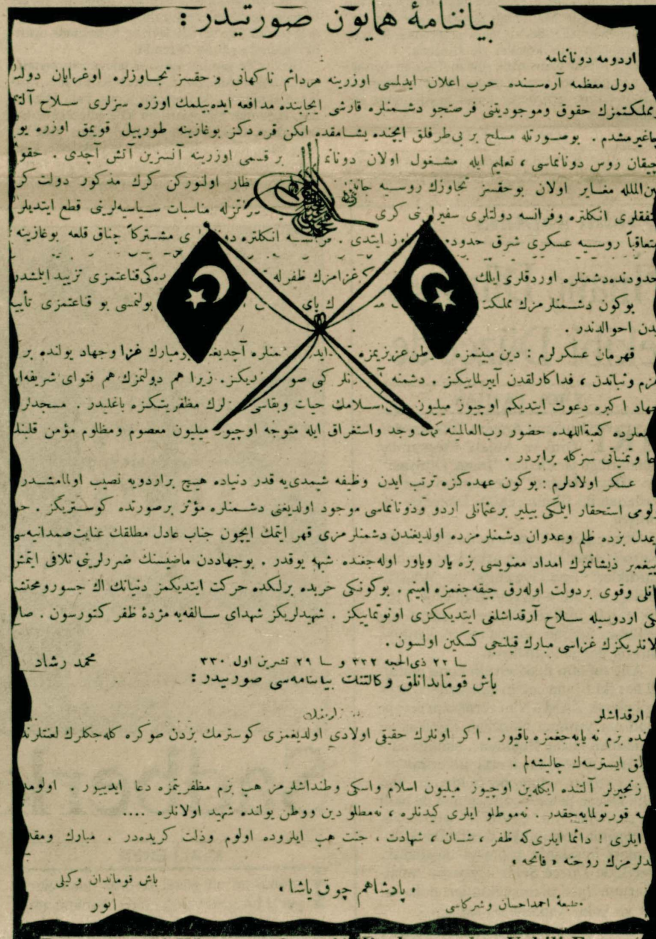 بياننامهٔ همايون صورتيدر :
اردومه دونانمامه
دول معظمه آره‌سنده حرب اعلان ايدلمسی اوزرينه هردائم ناكهانی و حقسز تجاوزلره اوغرايان دولت
مملكتمزك حقوق وموجوديتنی فرصتجو دشمنلره قارشی ايجابنده مدافعه ايده‌بيلمك اوزره سزلری سلاح آلتنه
چاغيرمشدم . بوصورتله مسلح بر بی‌طرفلق ايچنده يشامقده ايكن قره دكز بوغازينه طورپيل قويمق اوزره يوله
چيقان روس دونانماسی ، تعليم ايله مشغول اولان دونانما بر قسمی اوزرينه آنسزين آتش آچدی . حقوق
بين‌المللله مغاير اولان بوحقسز تجاوزك روسيه جانبندن انتظار اولنوركن كرك مذكور دولت كرك
متفقلری انكلتره وفرانسه دولتلری سفيرلرينی كری مناسبات سياسيه‌لرينی قطع ايتديلر
متعاقباً روسيه عسكری شرق حدودمزه تجاوز ايتدی . فرانسه انكلتره دونانمالری مشتركاً چناق قلعه بوغازينه
حدودنده‌دشمنلره اوردقاری ايلك غزامزك ظفرله قناعتمزی تزييد ايلمشدر
بوكون دشمنلرمزك مملكت پای بولنمسی بو قناعتمزی تأييد
ايدن احوالدندر .
قهرمان عسكرلرم : دين مبينمزه وطن‌عزيزيمزه دشمنلره آچديغمز بومبارك غزا وجهاد يولنده بر
عزم وثباتدن ، فداكارلقدن آيرلمايكز . دشمنه آرسلانلر كبی صولت ايديكز . زيرا هم دولتمزك هم فتوای شريفه‌ايله
جهاد اكبره دعوت ايتديكم اوچيوز ميليون اهل اسلامك حيات وبقاسی سزلرك مظفريتكزه باغليدر . مسجدلرده
جامعلرده كعبةاللهده حضور رب‌العالمينه كمال وجد واستغراق ايله متوجه اوچيوز ميليون معصوم ومظلوم مؤمن قلبنك
دعا وتمنياتی سزكله برابردر .
عسكر اولادلرم : بوكون عهده‌كزه ترتب ايدن وظيفه شيمدی‌يه قدر دنياده هيچ براردويه نصيب اولمامشدر
اولومی استحقار ايتمكی بيلير برعثمانلی اردو ودونانماسی موجود اولديغنی دشمنلره مؤثر برصورتده كوستريكز . حق
وعدل بزده ظلم وعدوان دشمنلرمزده اولديغندن دشمنلرمزی قهر ايتمك ايچون جناب عادل مطلقك عنايت‌صمدانيه‌سی
پيغمبر ذيشانمزك امداد معنويسی بزه يار وياور اوله‌جغنده شبهه يوقدر . بوجهاددن ماضيسنك ضررلرينی تلافی ايتمش
شانلی وقوی بردولت اوله‌رق چيقه‌جغمزه امينم . بوكونكی حربده برلكده حركت ايتديكمز دنيانك اك جسورومحتشم
ايكی اردوسيله سلاح آرقداشلغی ايتديككزی اونوتمايكز . شهيدلريكز شهدای سالفه‌يه مژدهٔ ظفر كتورسون . صاغ
قالانلريكزك غزاسی مبارك قيليجی كسكين اولسون .
٢٢ ذی‌الحجه ٣٣٢ و ٢٩ تشرين اول ٣٣٠
محمد رشاد
باش قوماندانلق وكالتنك بياننامه‌سی صورتيدر :
ارقداشلر
بزم نه ياپه‌جغمزه باقيور . اكر اونلرك حقيقی اولادی اولديغمزی كوسترمك بزدن صوكره كله‌جكلرك لعنتلرندن
ايسترسه‌ك چاليشه‌لم .
زنجيرلر آلتنده ايكله‌ين اوچيوز ميليون اسلام واسكی وطنداشلرمز هپ بزم مظفريتمزه دعا ايدييور . اولومدن
قورتولمايه‌جقدر . نه‌موطلو ايلری كيدنلره ، نه‌مطلو دين ووطن يولنده شهيد اولانلره ....
ايلری ! دائما ايلری‌كه ظفر ، شان ، شهادت ، جنت هپ ايلروده اولوم وذلت كريده‌در . مبارك ومقدس
شهيدلرمزك روحنه « فاتحه »
« پادشاهم چوق ياشا »
باش قوماندان وكيلی
انور
مطبعهٔ احمداحسان وشركاسی